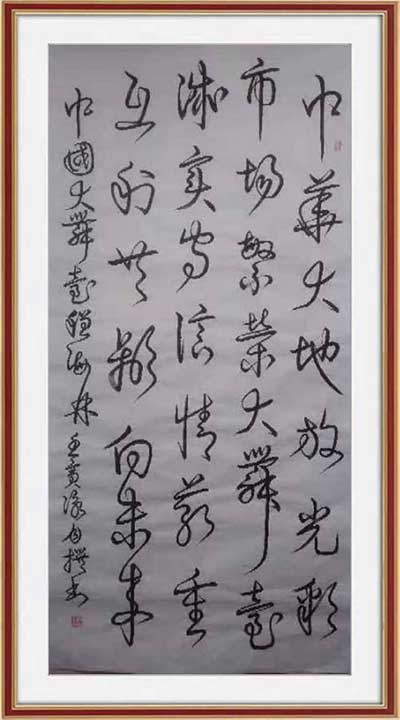 中華大地放光彩
市場繁榮大舞臺
誠實守信情義重
互利共贏向未來
中國大舞臺海林王自撰書